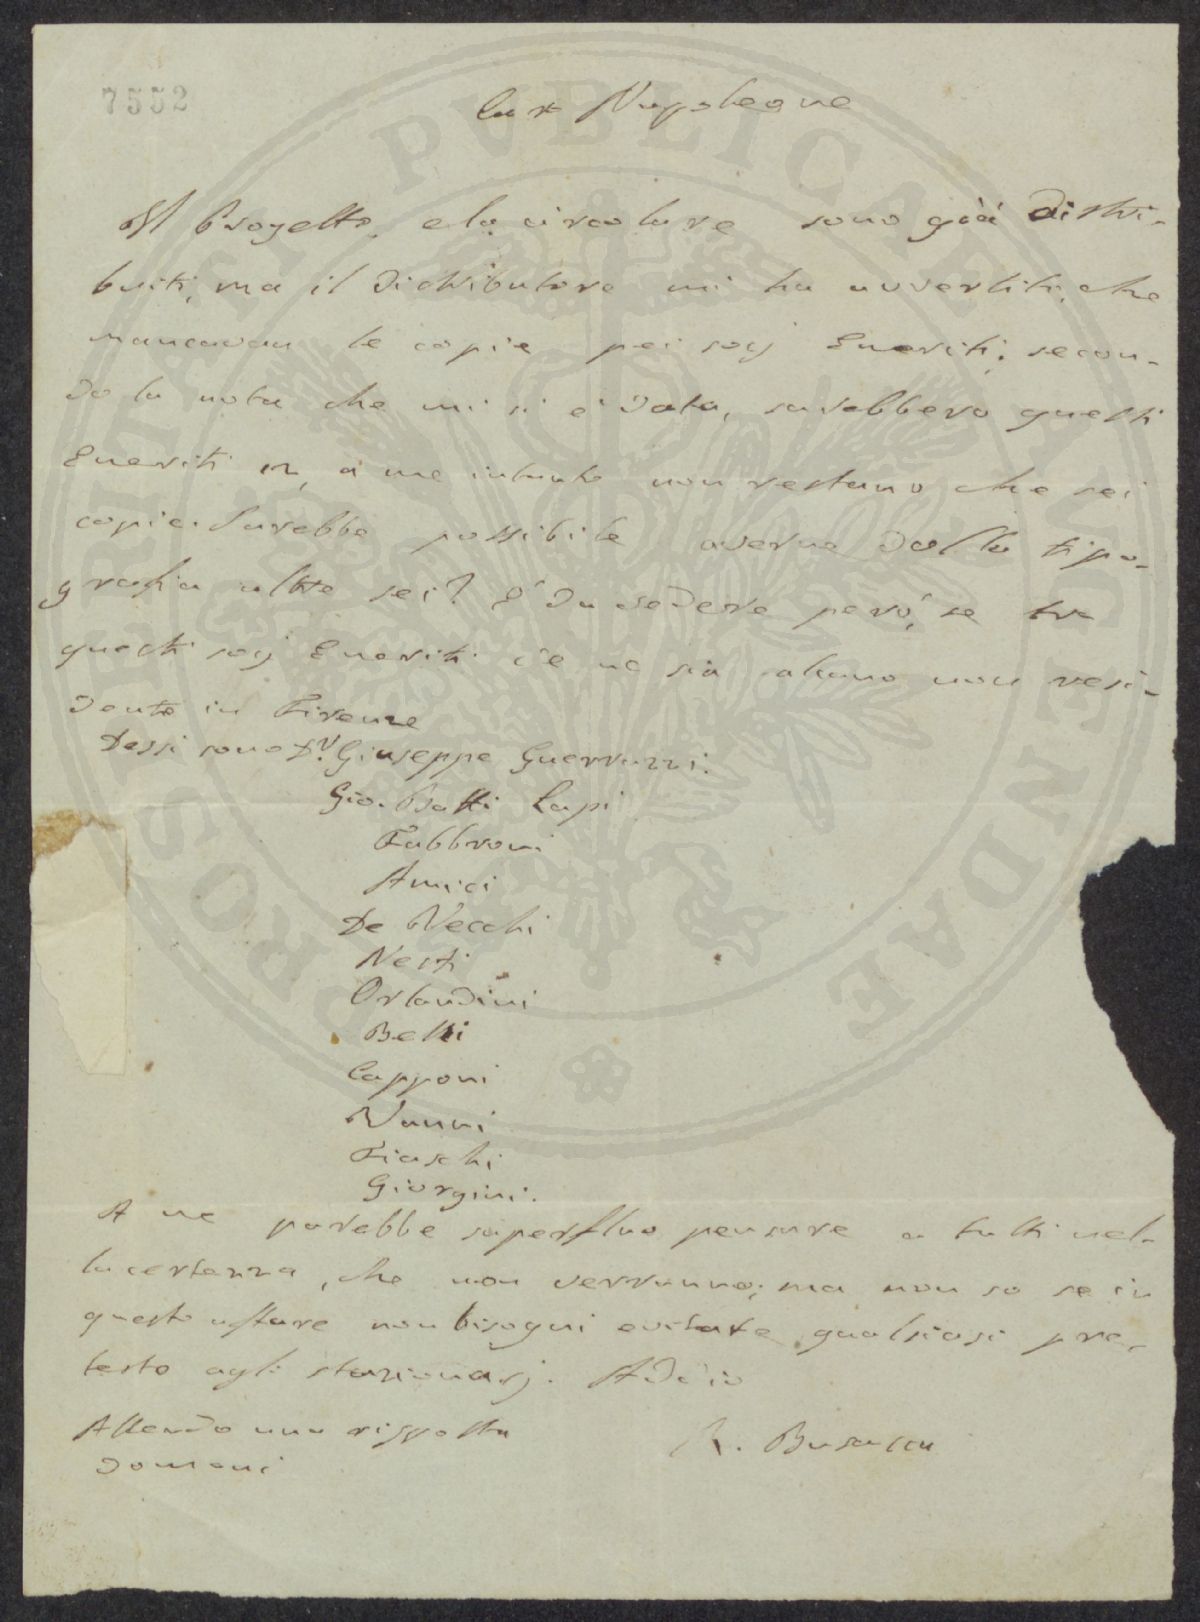 7552
Car Napoleone
Il Progetto, e la circolare sono già distri-
buiti, ma il distributore mi ha avvertito, che
mancavan le copie pei socj Emeriti; secon-
do la nota che mi si è data, sarebbero questi
Emeriti 12, a me intanto non restano che sei
copie. Sarebbe possibile averne dalla tipo-
grafia altre sei? E' da vedere però, se tra
questi socj Emeriti ce ne sia alcuno non resi-
dente in Firenze
Dessi sono Dr. Giuseppe Guerrazzi.
Gio. Batti Lapi
Fabbroni
Amici
De Vecchi
Nesti
Orlandini
Betti
Capponi
Vanni
Fiaschi
Giorgini.
A me parebbe superfluo pensare a tutti nel-
la certezza, che non verranno; ma non so se in
questo affare non bisogni evitare qualsiasi pre-
testo agli stazionarj. Addio
Attendo una risposta
domani
R. Busacca
PROSPERITATI PVBLICAE AVGENDAE